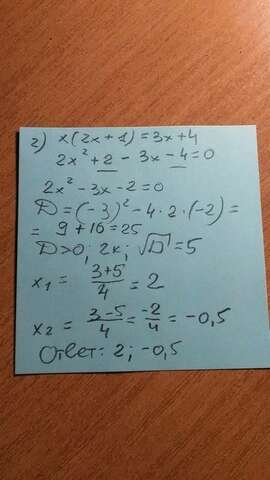 2) x(2x+1)=3x+4
2x²+2-3x-4=0
2x²-3x-2=0
D=(-3)²-4·2·(-2)=
= 9+16=25
D>0; 2к; √D=5
x₁ = 3+5/4 = 2
x₂ = 3-5/4 = -2/4 = -0,5
Ответ: 2; -0,5